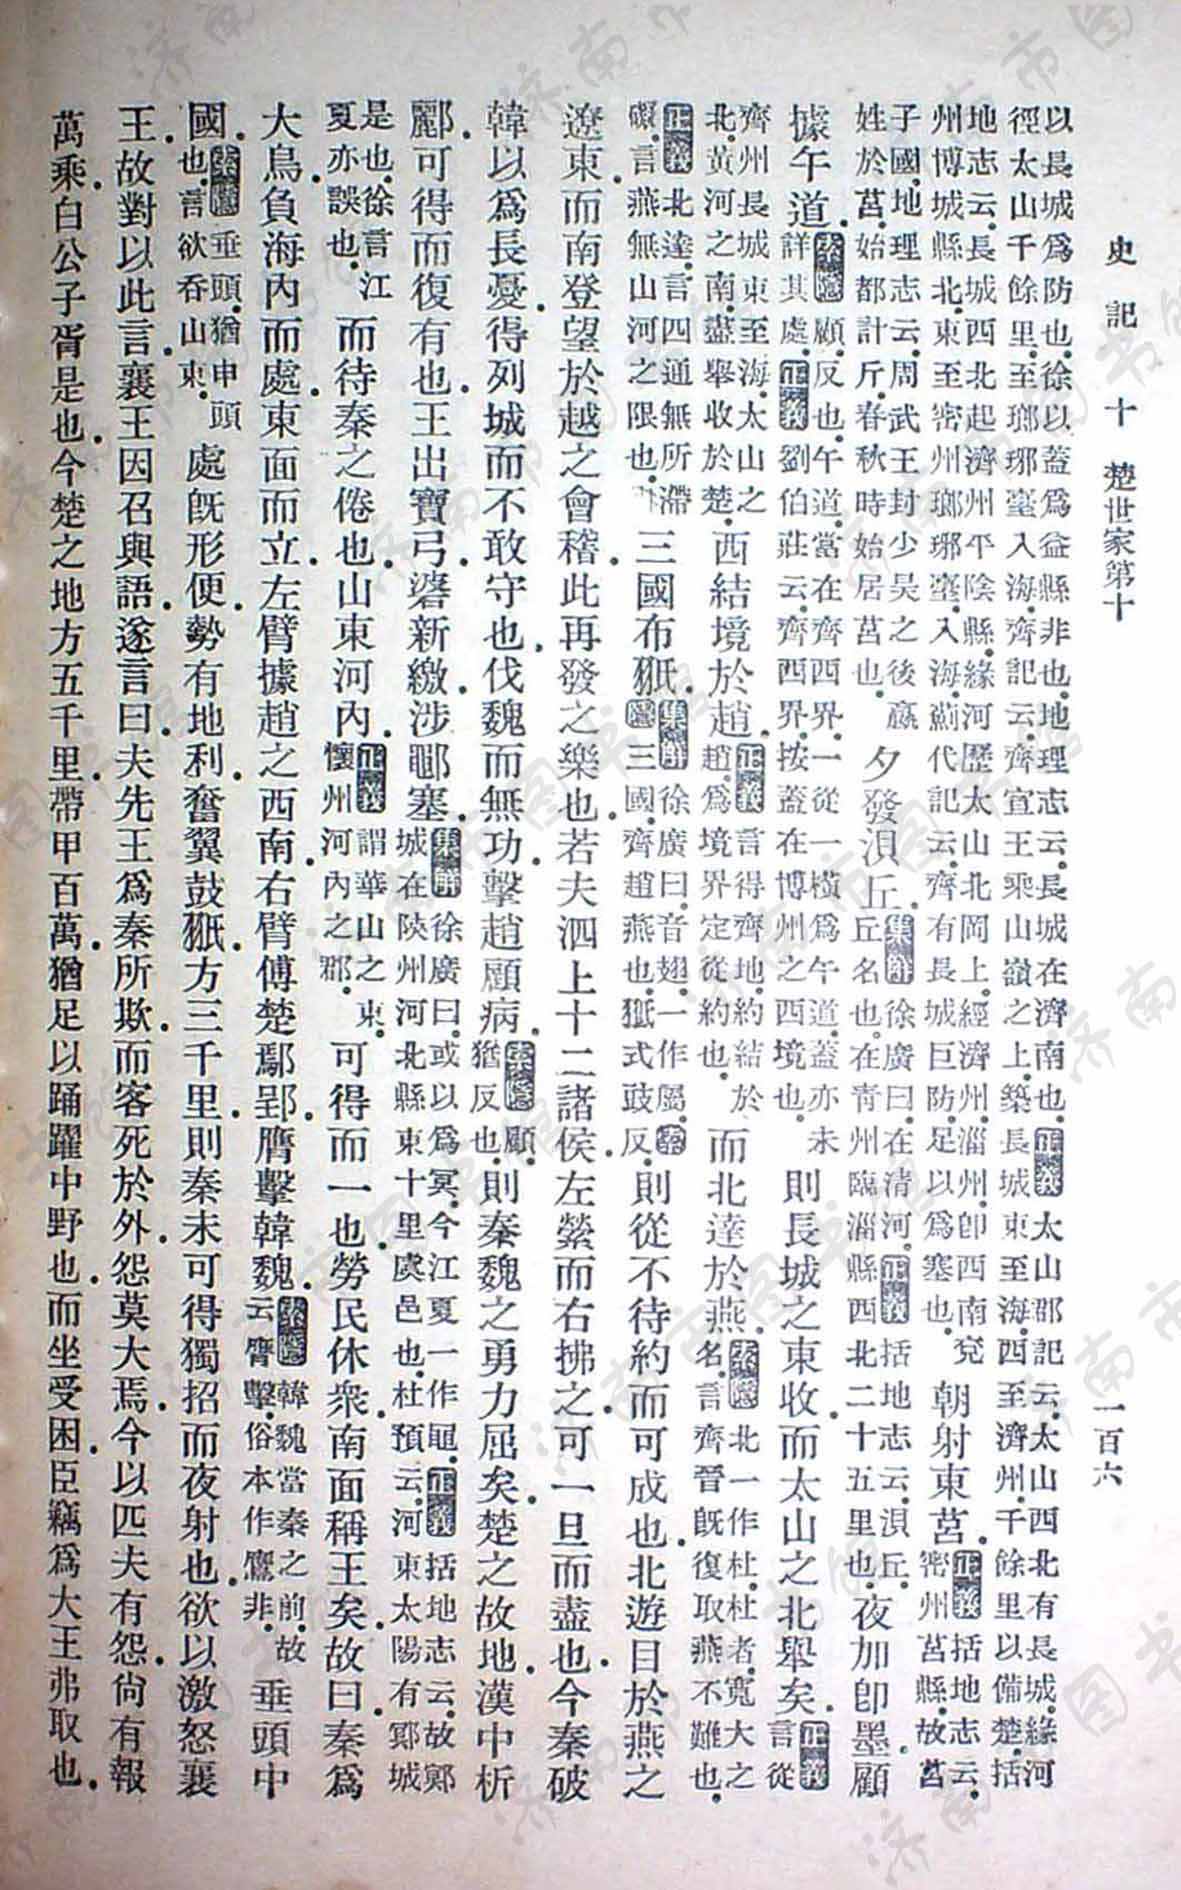 史記十 楚世家第十 一百六
以長城爲防也.徐以蓋爲益縣非也.地理志云.長城在濟南也.正義太山郡記云.太山西北有長城.緣河
徑太山千餘里.至瑯琊臺入海.齊記云.齊宣王乘山嶺之上.築長城東至海.西至濟州.千餘里以備楚.括
地志云.長城西北起濟州平陰縣.緣河歷太山北岡上.經濟州淄州.卽西南兗
州博城縣北.東至密州瑯琊臺入海.薊代記云.齊有長城巨防.足以爲塞也.
朝射東莒.
正義括地志云.
密州莒縣.故莒
子國.地理志云.周武王封少昊之後.嬴
姓於莒.始都計斤.春秋時始居莒也.
夕發浿丘.
集解徐廣曰.在清河.正義括地志云.浿丘.
丘名也.在青州臨淄縣西北二十五里也.
夜加卽墨.顧
據午道.
索隱顧.反也.午道.當在齊西界.一從一橫爲午道.蓋亦未
詳其處.正義劉伯莊云.齊西界.按蓋在博州之西境也.
則長城之東收.而太山之北舉矣.
正義
言從
齊州長城東至海.太山之
北.黃河之南.盡舉收於楚.
西結境於趙.
正義言得齊地.約結於
趙爲境界.定從約也.
而北達於燕.
索隱北一作杜.杜者.寬大之
名.言齊晉旣復.取燕不難也.
正義北達.言四通無所滯
礙.言燕無山河之限也.
三國布𧿁.
集解徐廣曰.音翅.一作屬.索
隱三國.齊趙燕也.式豉反.
則從不待約而可成也.北遊目於燕之
遼東.而南登望於越之會稽.此再發之樂也.若夫泗上十二諸侯.左縈而右拂之.可一旦而盡也.今秦破
韓以爲長憂.得列城而不敢守也.伐魏而無功.擊趙顧病.
索隱顧.
猶反也.
則秦魏之勇力屈矣.楚之故地.漢中析
酈.可得而復有也.王出寶弓.碆新繳.涉鄳塞.
集解徐廣曰.或以爲冥.今江夏.一作黽.正義括地志云.故鄳
城在陝州河北縣東十里虞邑也.杜預云.河東太陽有鄳城
是也.徐言江
夏.亦誤也.
而待秦之倦也.山東河內.
正義謂華山之東.
懷州河內之郡.
可得而一也.勞民休衆.南面稱王矣.故曰.秦爲
大鳥.負海內而處.東面而立.左臂據趙之西南.右臂傅楚鄢郢.膺擊韓魏.
索隱韓魏當秦之前.故
云膺擊.俗本作鷹.非.
垂頭中
國.
索隱垂頭.猶申頭
也.言欲吞山東.
處旣形便.勢有地利.奮翼鼓𧿁.方三千里.則秦未可得獨招而夜射也.欲以激怒襄
王.故對以此言.襄王因召與語.遂言曰.夫先王爲秦所欺.而客死於外.怨莫大焉.今以匹夫有怨.尙有報
萬乘.白公子胥是也.今楚之地方五千里.帶甲百萬.猶足以踊躍中野也.而坐受困.臣竊爲大王弗取也.